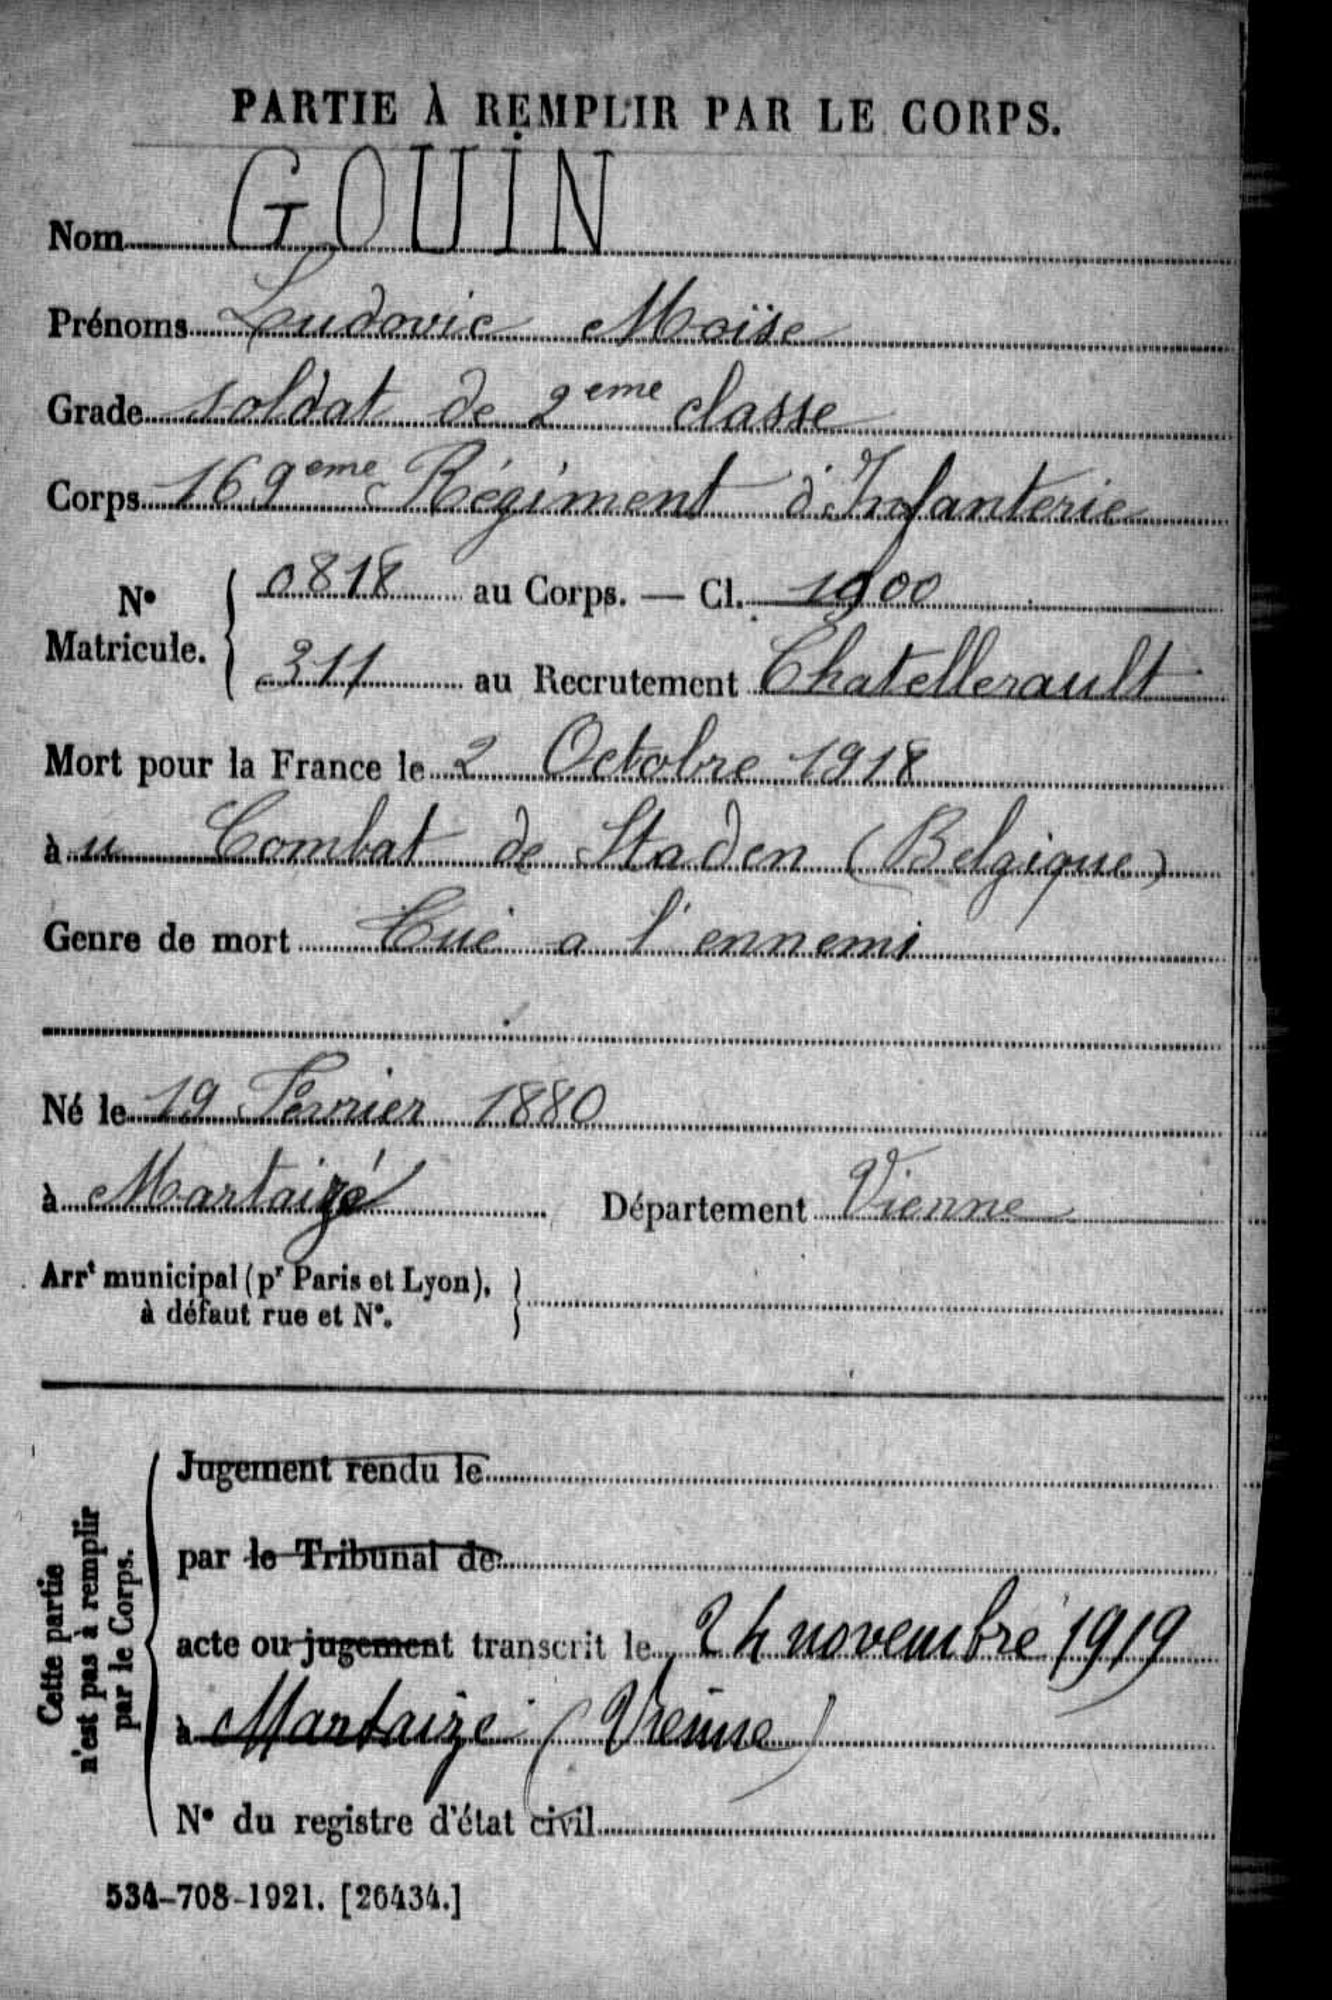 PARTIE À REMPLIR PAR LE CORPS.
Nom GOUIN
Prénoms Ludovic Moïse
Grade soldat de 2eme classe
Corps 169eme Régiment d'Infanterie
N° Matricule. 0818 au Corps. — Cl. 1900
311 au Recrutement Chatellerault
Mort pour la France le 2 Octobre 1918
àu Combat de Staden (Belgique)
Genre de mort Tué a l'ennemi
Né le 19 Février 1880
à Martaizé Département Vienne
Arrt municipal (pr Paris et Lyon),
à défaut rue et N°.
Cette partie
n'est pas à remplir
par le Corps.
Jugement rendu le
par le Tribunal de
acte ou jugement transcrit le 24 novembre 1919
à Martaizé (Vienne)
N° du registre d'état civil
534-708-1921. [26434.]